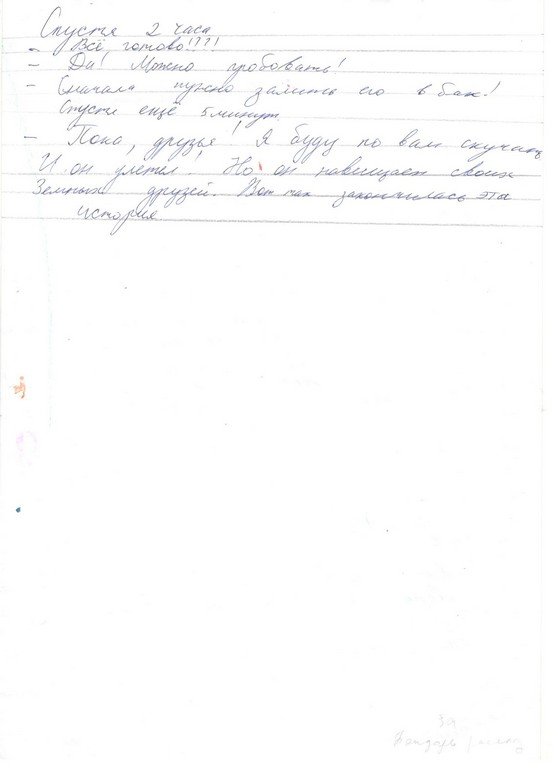 Спустя 2 часа
- Всё готово!!?!
- Да! Можно пробовать!
- Сначала нужно залить его в бак!
Спустя ещё 5 минут
- Пока, друзья! Я буду по вам скучать
И он улетел! Но он навещает своих
Земных друзей. Вот так закончилась эта
история